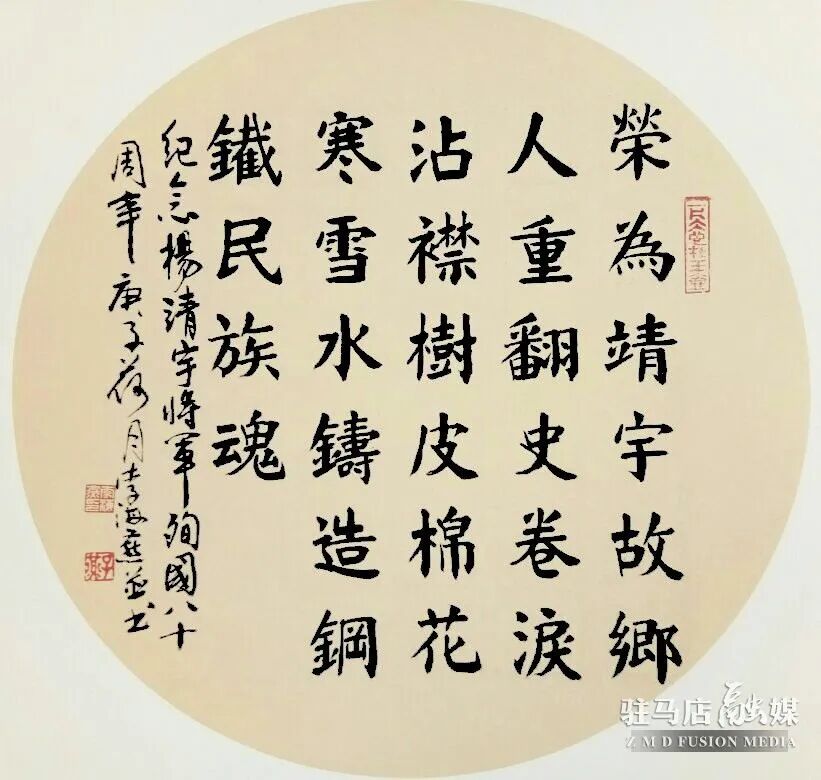 榮為靖宇故鄉
人重翻史卷淚
沾襟樹皮棉花
寒雪水鑄造鋼
鐵民族魂
紀念楊靖宇将軍殉國八十
周年庚子荷月李海燕並书
驻马店融媒
Z M D FUSION MEDIA